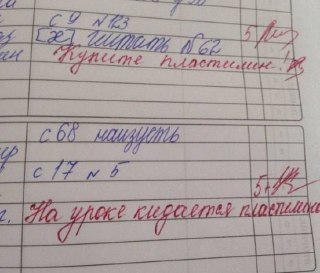 с 9 № 123
[ж] читать № 62 5
Купите пластилин!
с 68 наизусть
с 17 № 5 5+
г. На уроке кидается пластилино